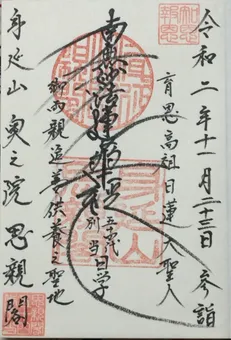 令和二年十一月二十三日 参詣
育恩高祖日蓮大聖人
南無妙法蓮華経
別当
日学
御両親追善供養之聖地
身延山奥之院思親閣